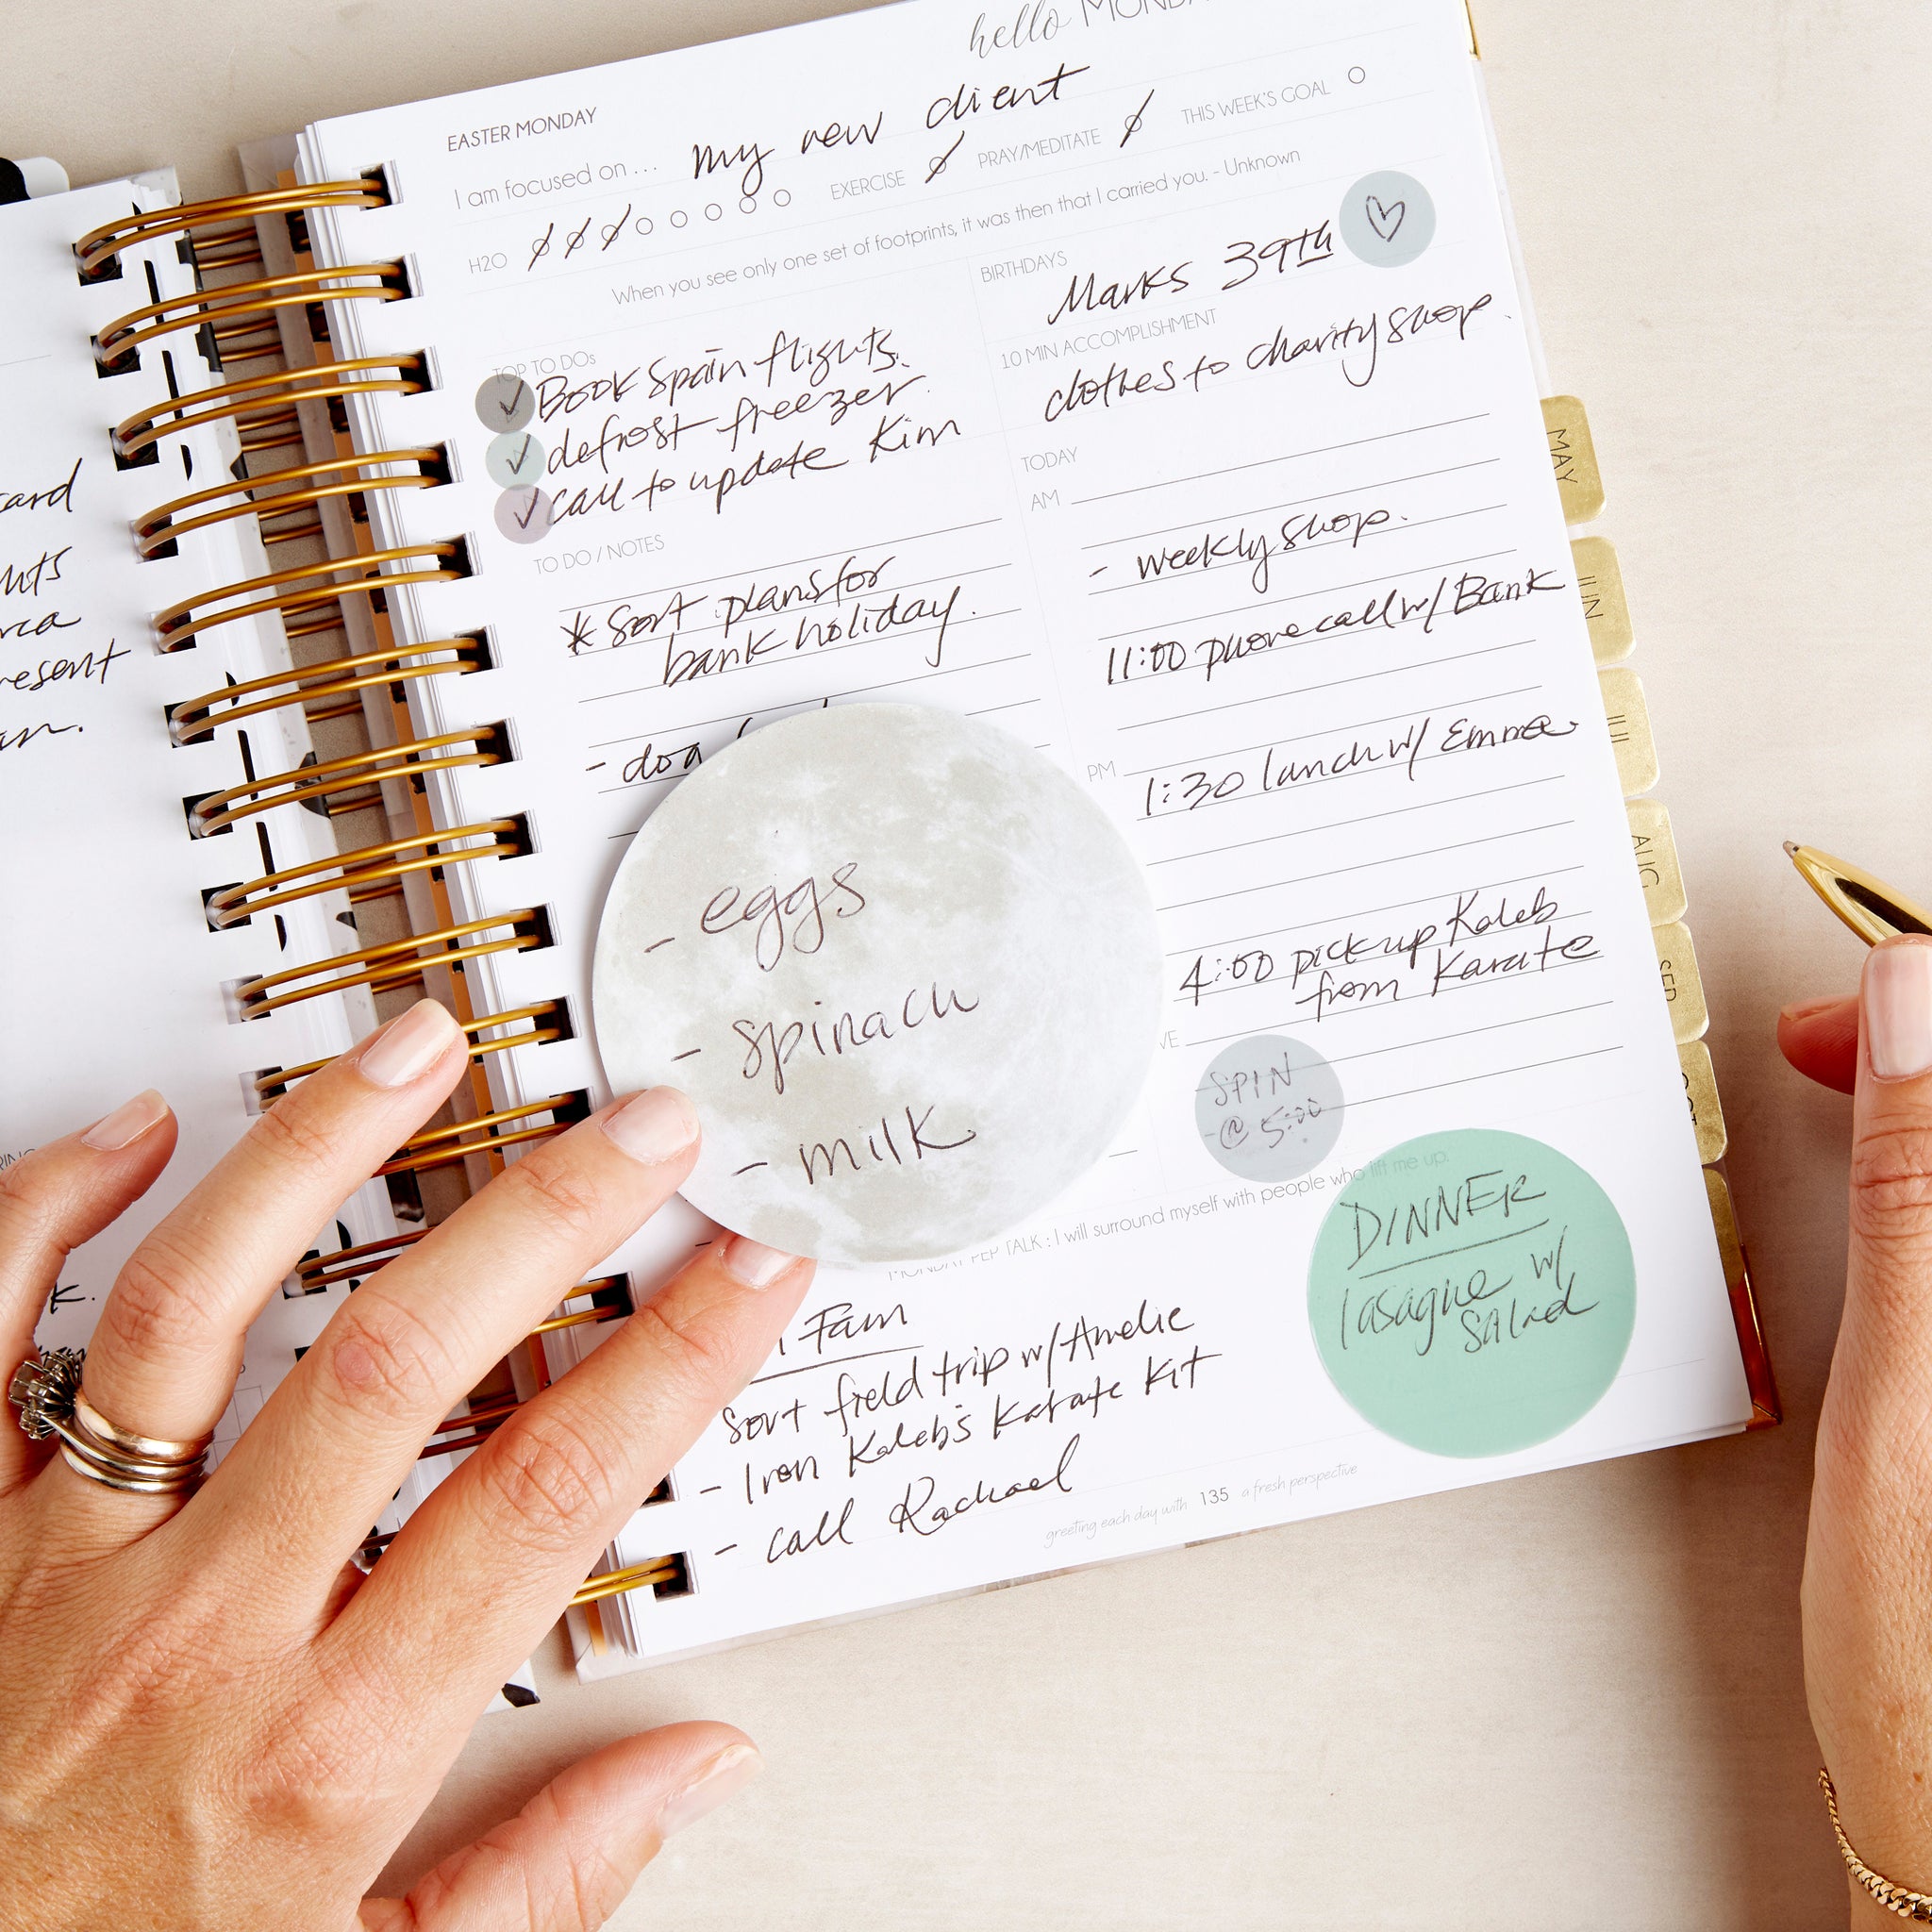 hello
EASTER MONDAY
I am focused on ... my new client
H2O EXERCISE PRAY/MEDITATE THIS WEEK'S GOAL
When you see only one set of footprints, it was then that I carried you. - Unknown
TOP TO DOs
Book Spain flights.
defrost freezer.
call to update Kim
TO DO / NOTES
* Sort plans for
bank holiday.
- eggs
- spinach
- milk
BIRTHDAYS
Marks 39th
10 MIN ACCOMPLISHMENT
clothes to charity shop.
TODAY
AM
- weekly shop.
11:00 phone call w/ Bank
PM
1:30 lunch w/ Emma.
4:00 pick up Kaleb
from Karate
SPIN
@ 5:00
MONDAY PEP TALK : I will surround myself with people who lift me up.
DINNER
lasagne w/
Salad
Fam
Sort field trip w/ Amelie
- Iron Kaleb's Karate Kit
- call Rachael
greeting each day with 135 a fresh perspective
MAY
JUN
JUL
AUG
SEP
OCT
resent